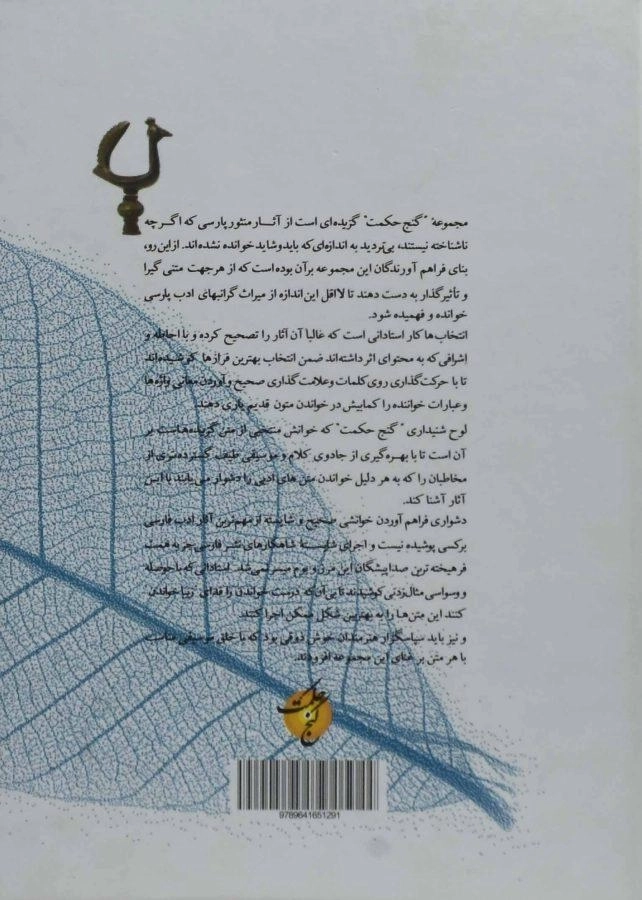 مجموعهٔ "گنج حکمت" گزیده‌ای است از آثار منثور پارسی که اگرچه
ناشناخته نیستند، بی‌تردید به اندازه‌ای که باید و شاید خوانده نشده‌اند. از این رو،
بنای فراهم آورندگان این مجموعه برآن بوده است که از هر جهت متنی گیرا
و تأثیرگذار به دست دهند تا لااقل این اندازه از میراث گرانبهای ادب پارسی
خوانده و فهمیده شود.
انتخاب‌ها کار استادانی است که غالبا آن آثار را تصحیح کرده و با احاطه و
اشرافی که به محتوای اثر داشته‌اند ضمن انتخاب بهترین فرازها کوشیده‌اند
تا با حرکت‌گذاری روی کلمات و علامت‌گذاری صحیح و آوردن معانی واژه‌ها
و عبارات خواننده را کمابیش در خواندن متون قدیم یاری دهند.
لوح شنیداری "گنج حکمت" که خوانش منتخبی از متن گزیده‌هاست بر
آن است تا با بهره‌گیری از جادوی کلام و موسیقی طیف گسترده‌تری از
مخاطبان را که به هر دلیل خواندن متن های ادبی را دشوار می‌یابند با این
آثار آشنا کند.
دشواری فراهم آوردن خوانشی صحیح و شایسته از مهم‌ترین آثار ادب فارسی
برکسی پوشیده نیست و اجرای شایستهٔ شاهکارهای نثر فارسی جز به همت
فرهیخته ترین صداپیشگان این مرز و بوم میسر نمی‌شد. استادانی که با حوصله
و وسواسی مثال‌زدنی کوشیدند تا بی‌آن که درست خواندن را فدای زیبا خواندن
کنند این متن‌ها را به بهترین شکل ممکن اجرا کنند.
و نیز باید سپاسگزار هنرمندان خوش ذوقی بود که با خلق موسیقی متناسب
با هر متن بر غنای این مجموعه افزودند.
گنج حکمت
9789641651291